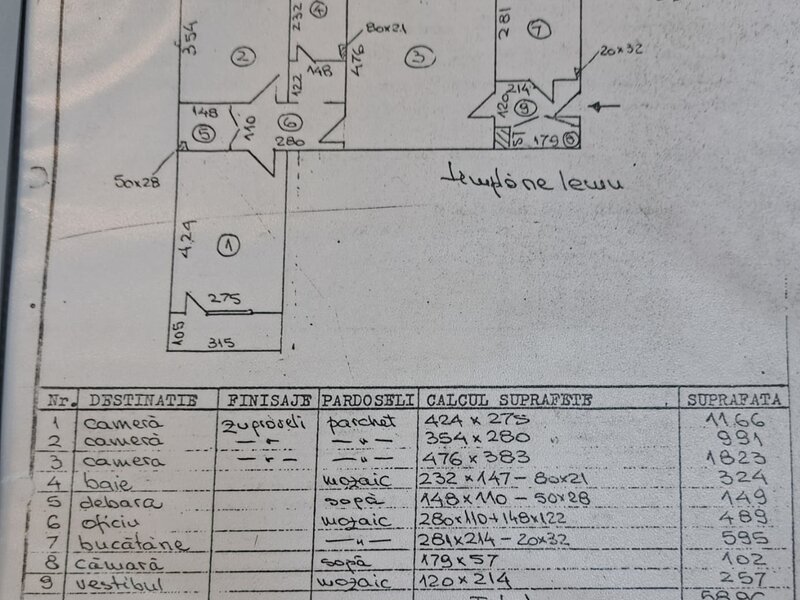 232
4
354
281
7
80x21
476
2
3
148
20x32
122
214
120
9
148
5
110
6
280
51
179
8
50x28
tâmplărie lemn
424
1
275
105
315
Nr. DESTINATIE FINISAJE PARDOSELI CALCUL SUPRAFETE SUPRAFATA
1 cameră zugrăveli parchet 424 x 275 11.66
2 cameră —"— —"— 354 x 280 991
3 camera —"— —"— 476 x 383 1823
4 baie mozaic 232 x 147 - 80x21 324
5 debara sapă 148x110 - 50x28 149
6 oficiu mozaic 280x110+148x122 489
7 bucătărie —"— 281x214 - 20x32 595
8 cămară sapă 179 x 57 102
9 vestibul mozaic 120 x 214 257